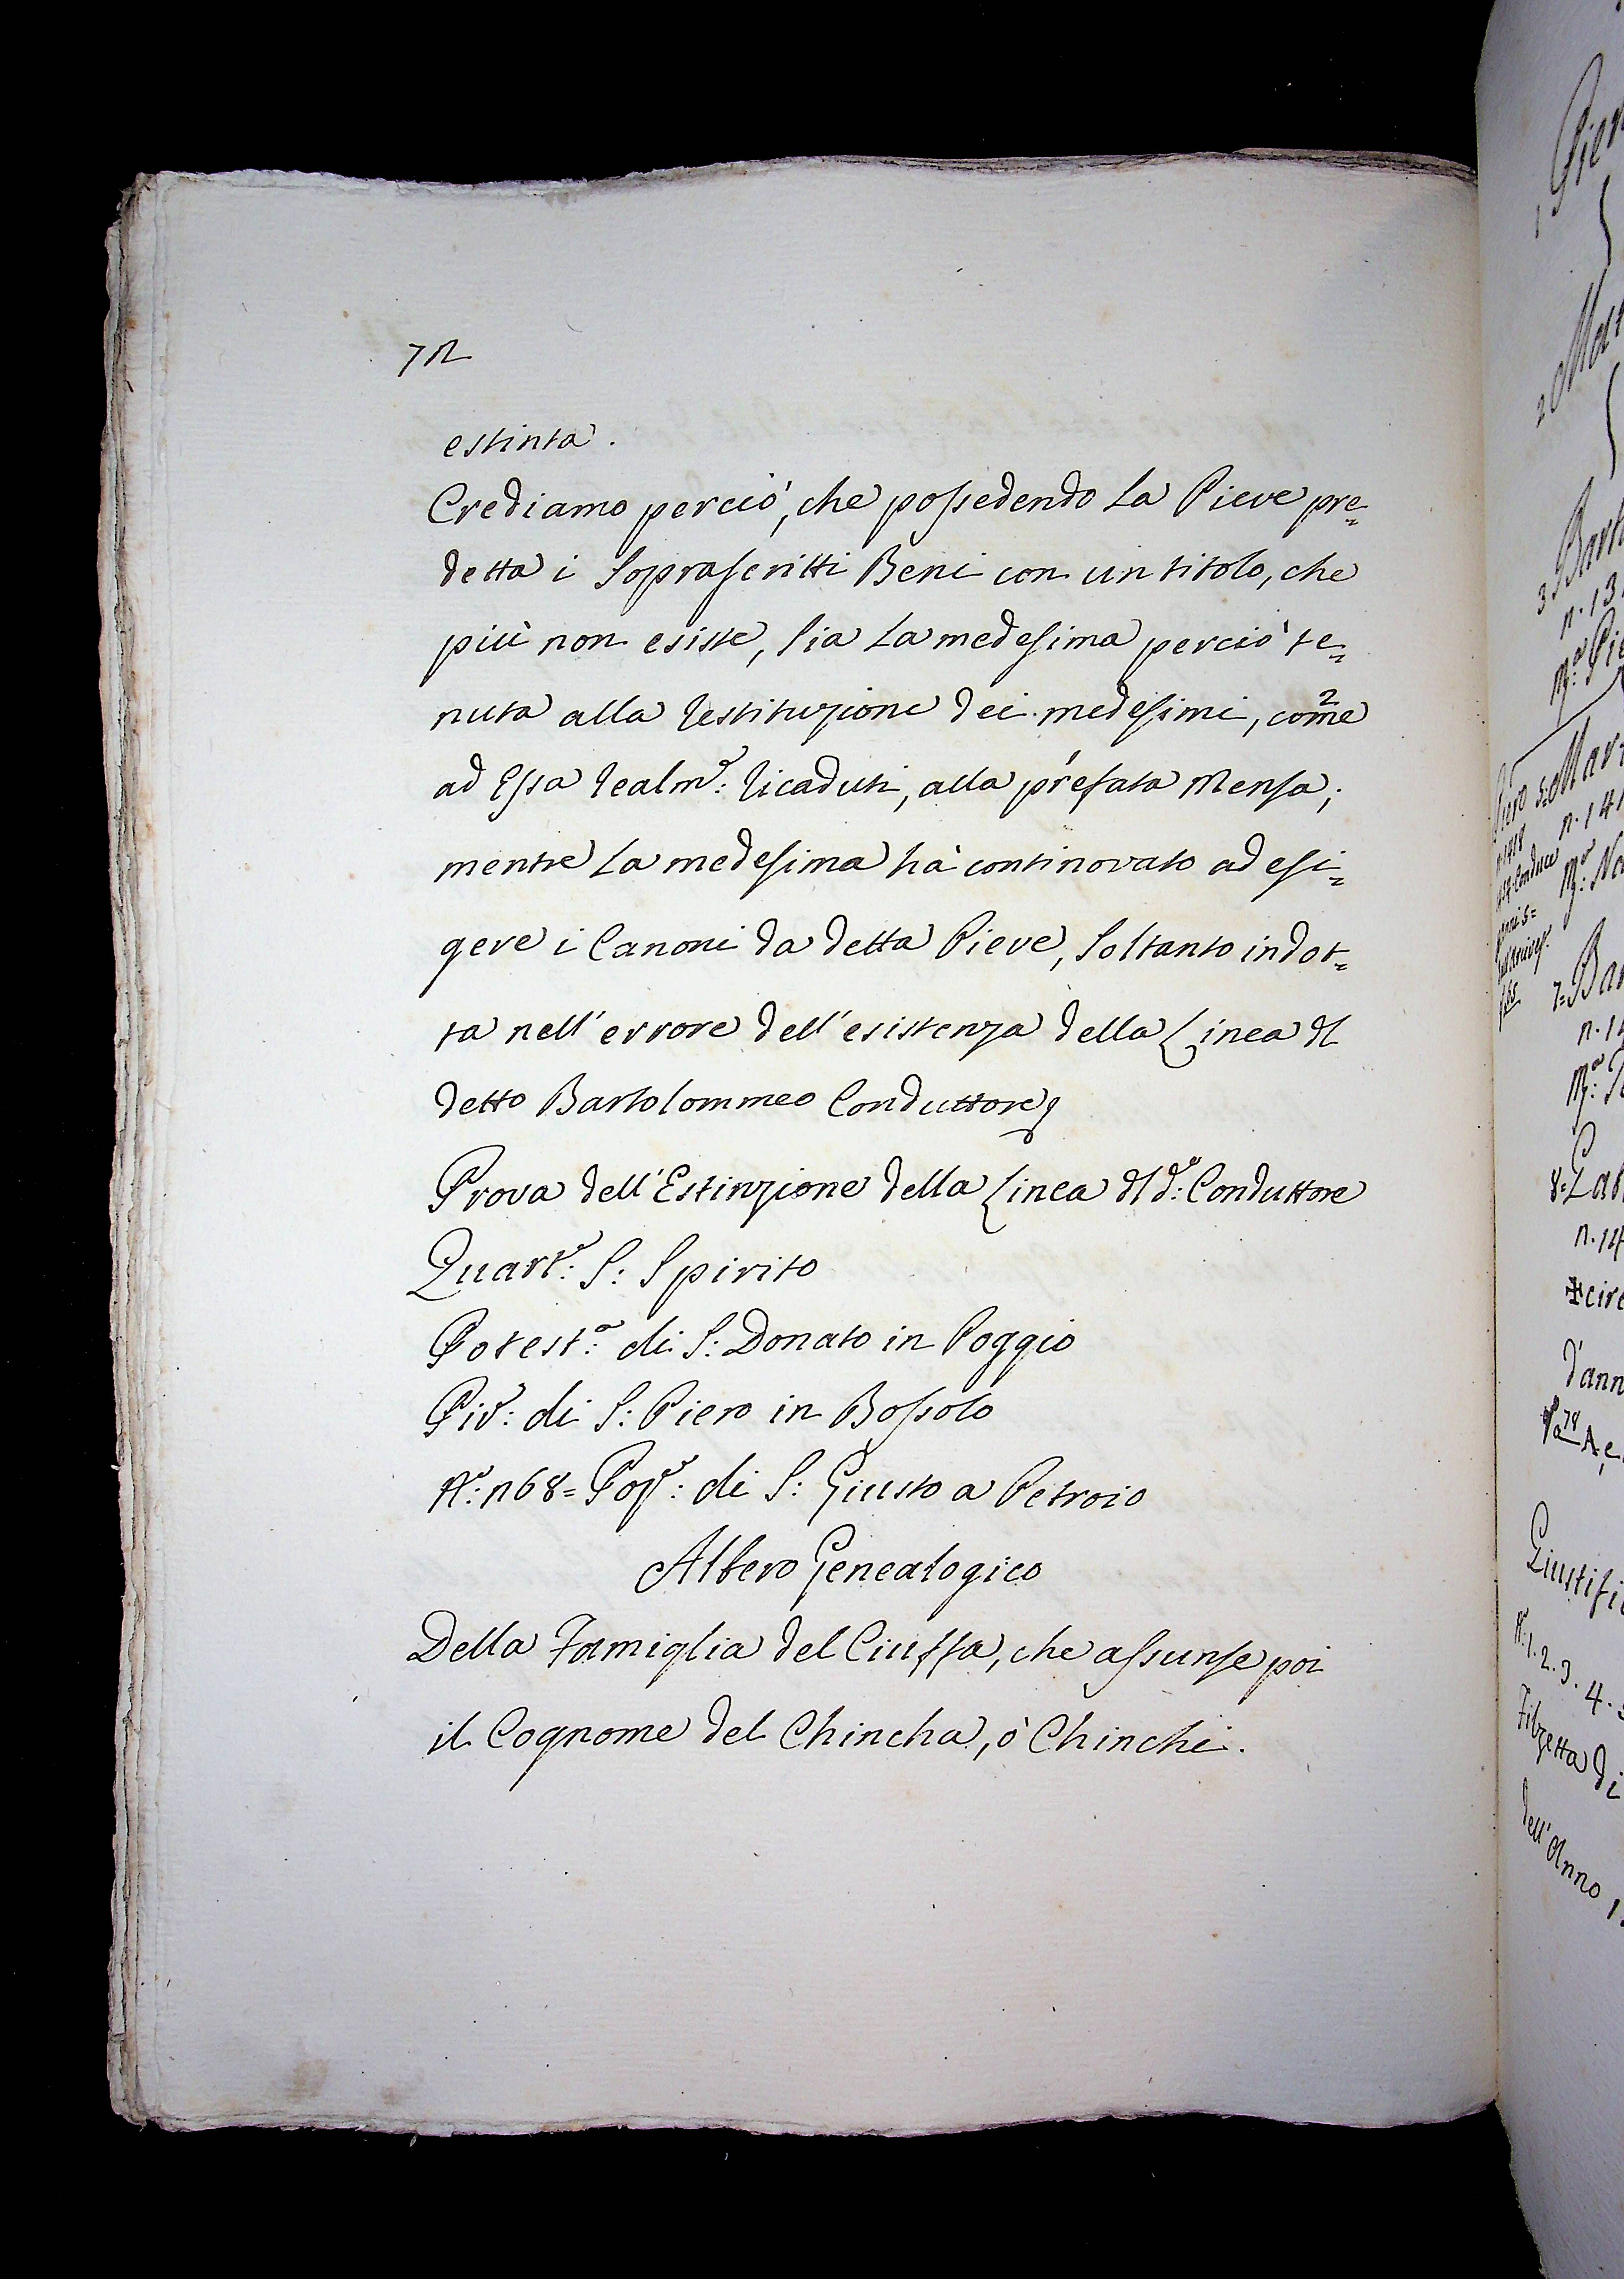 72
estinta.
Crediamo perciò, che possedendo la Pieve pre=
detta i soprascritti Beni con un titolo, che
più non esiste, sia la medesima perciò te=
nuta alla restituzione dei medesimi, come
ad Essa realm.e: ricaduti, alla prefata Mensa;
mentre la medesima hà continovato ad esi=
gere i Canoni da detta Pieve, soltanto indot=
ta nell'errore dell'esistenza della Linea dl
detto Bartolommeo Conduttore
Prova dell'Estinzione della Linea dl d.o: Conduttore
Quart.e: S: Spirito
Potest.a: di S: Donato in Poggio
Piv.e: di S: Piero in Bossolo
N.o: 268= Pop.o: di S: Giusto a Petroio
Albero Genealogico
Della Famiglia del Ciuffa, che assunse poi
il Cognome del Chincha, ò Chinchi.
3
n. 13
5=
n. 141
7=
8=
Giustifi
N.o: 1. 2. 3. 4.
Filzetta di
dell'Anno 1